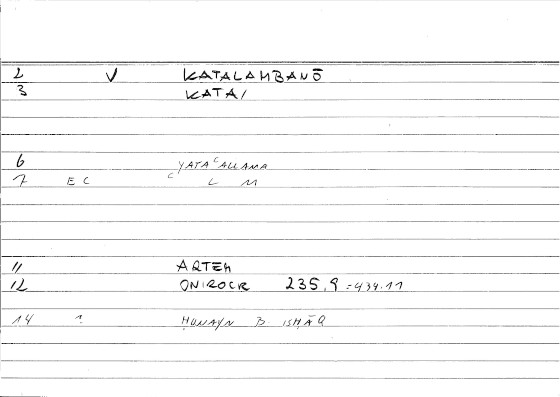 2 V KATALAMBANŌ
3 KATA/
6 YATAʿALLAMA
7 EC ʿ L M
11 ARTEM
12 ONIROCR 235,9 =434.11
14 ? ḤUNAYN B. ISḤĀQ